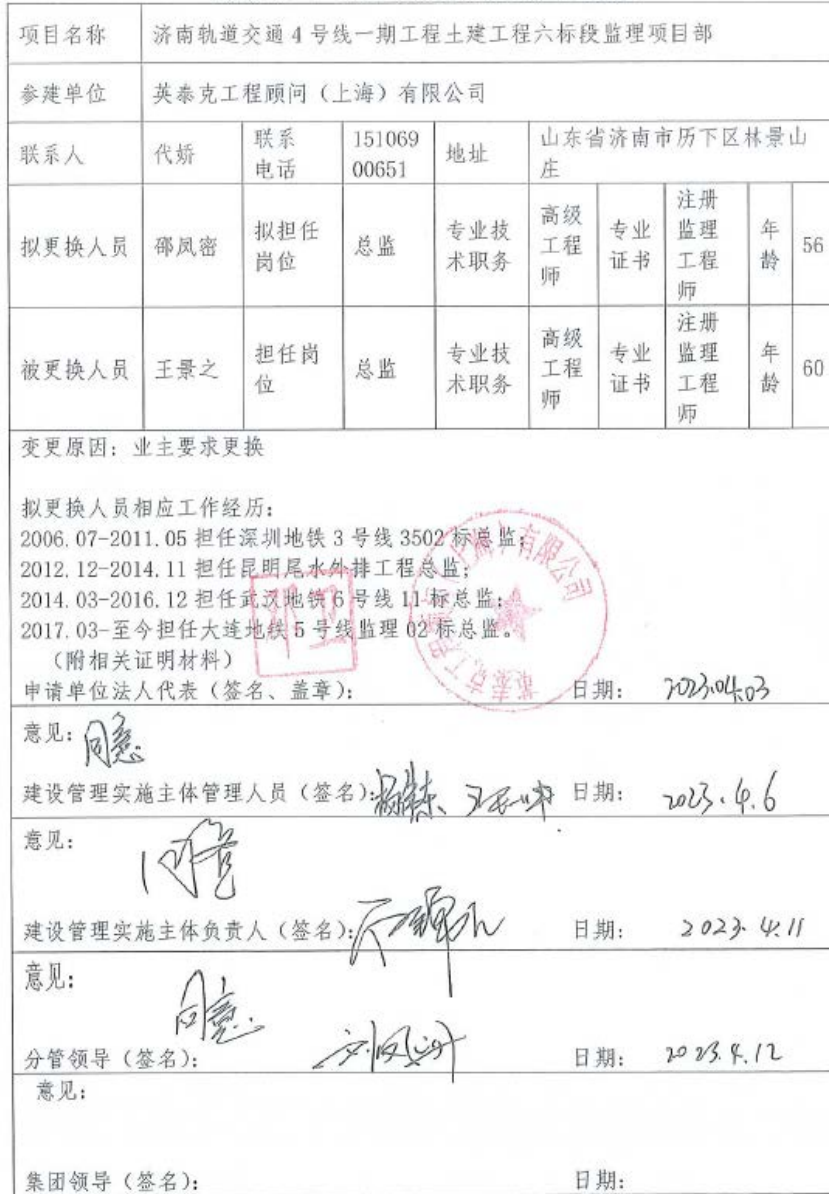 项目名称 济南轨道交通 4 号线一期工程土建工程六标段监理项目部
参建单位 英泰克工程顾问（上海）有限公司
联系人 代娇 联系电话 15106900651 地址 山东省济南市历下区林景山庄
拟更换人员 邵凤密 拟担任岗位 总监 专业技术职务 高级工程师 专业证书 注册监理工程师 年龄 56
被更换人员 王景之 担任岗位 总监 专业技术职务 高级工程师 专业证书 注册监理工程师 年龄 60
变更原因：业主要求更换
拟更换人员相应工作经历：
2006.07-2011.05 担任深圳地铁 3 号线 3502 标总监；
2012.12-2014.11 担任昆明尾水外排工程总监；
2014.03-2016.12 担任武汉地铁 6 号线 11 标总监；
2017.03-至今担任大连地铁 5 号线监理 02 标总监。
（附相关证明材料）
申请单位法人代表（签名、盖章）： 日期： 2023.04.03
意见：同意
建设管理实施主体管理人员（签名）： 日期： 2023.4.6
意见：
同意
建设管理实施主体负责人（签名）： 日期： 2023.4.11
意见：
同意
分管领导（签名）： 日期： 2023.4.12
意见：
集团领导（签名）： 日期：